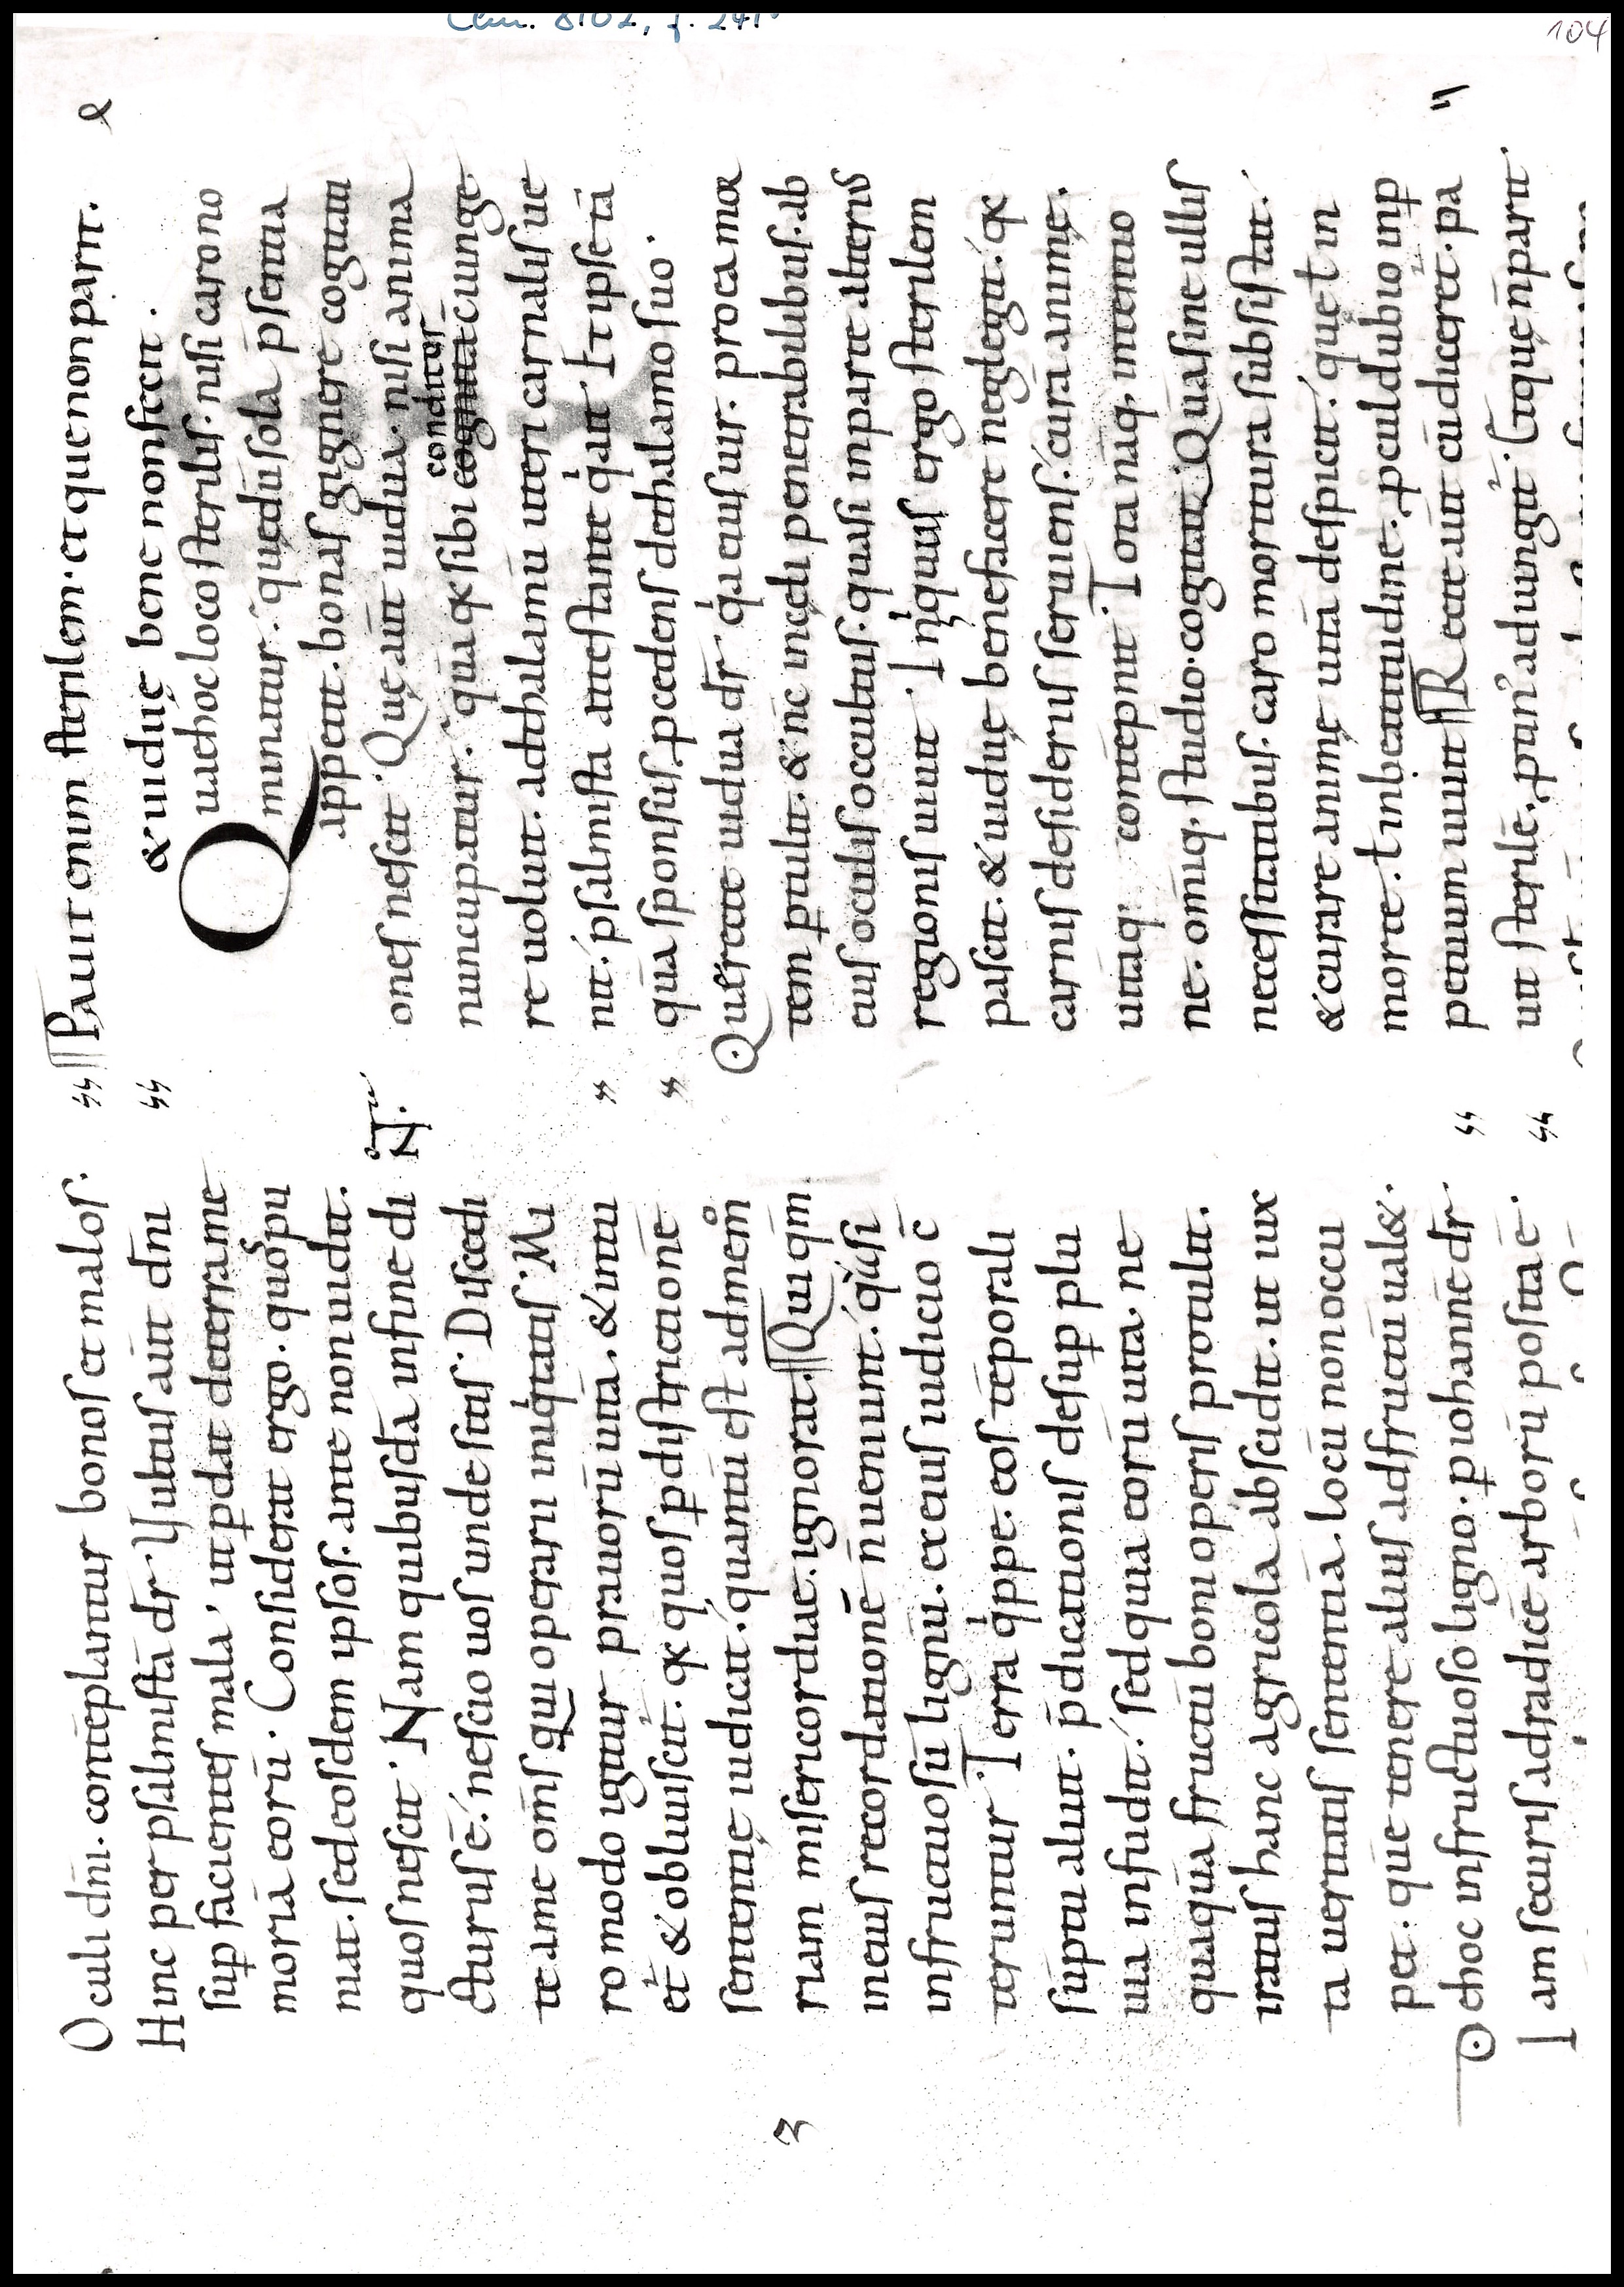 Clm. 8102, f. 241v
104
Oculi dn̄i. contēplantur bonos et malos.
Hinc per psalmistā dr̄. Uultus aūt dn̄i
sup̱ facientes mala, ut p̱dat deterra me
moriā eorū. Considerat ergo. quos pu
niat. sed eosdem ipsos. ante non uidit.
quos nescit. Nam quibusdā infine di
cturus ē. nescio uos unde sitis. Discedi
te ame om̄s qui operarii iniqͥtatis. Mi
ro modo igitur prauorū uitā. & intu
et᷑ & obliuiscit᷑. qͣ quos p̱ districtionē
sententię iudicat. quantū est ad mem̊
riam misericordiae. ignorat. Qui qm̄
ineius recordationē n̄ueniunt. qͣsi
infructuosū lignū. ex eius iudicio c̄
teruntur. Terra qͥppe. eos tēporali
sūptu aluit. p̄dicationis desup̱ plu
uia infudit. sed quia eorū uita. ne
quaquā fructū boni operis protulit.
iratus hanc agricola abscidit. ut iux
ta ueritatis sententiā. locū non occu
pet. quē tenere alius adfructū ual&.
Dehoc infructuoso ligno. p̱ iohannē dr̄.
Iam securis adradicē arborū posita ē.
N̊.
Pauit enim sterilem. et que non parit.
& uiduę bene nonfecit.
Quaehoc loco sterilis. nisi caro no
minatur. quędū sola p̄sentia
appetit. bonas gignere cogitati
ones nescit. Quę aūt uidua. nisi anima
nuncupatur. quā qͣ sibi cognita conditor ciunge
re uoluit. adthalamū uteri carnalis ue
nit. psalmista attestante qͥ ait. Et ipse tā
quā sponsus p̱cedens dethalamo suo.
Quę recte uidua dr̄. qͥa eius uir. pro ea mor
tem p̱tulit. & nc̄ incęli penetrabilibus. ab
eius oculis occultus. quasi inparte alterius
regionis uiuit. Iniqͥuus ergo sterilem
pascit. & uiduę benefacere neglegit. qͣ
carnis desideriis seruiens. curā animę.
uitāq. contēpnit. Tota nāq. intentio
ne. omīq. studio. cogitat. Quasine ullis
necessitatibus. caro moritura subsistat.
& curare animę uitā despicit. quęt in
morte. t inbeatitudine. p̱culdubio inp̱
petuum uiuit. Recte aūt cū diceret. pa
uit sterilē. p̱tinus adiungit. Et que n̄parit